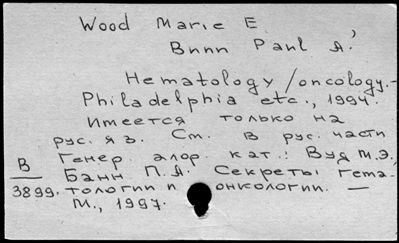 Wood Marie E
Bunn Paul A.
Hematology/oncology.-
Philadelphia etc., 1994.
Имеется только на
рус. яз. См. в рус. части
Генер. алфр. кат.: Вуд М.Э.,
Банн П.А. Секреты гема-
тологии и онкологии. —
М., 1997.
В
3899.